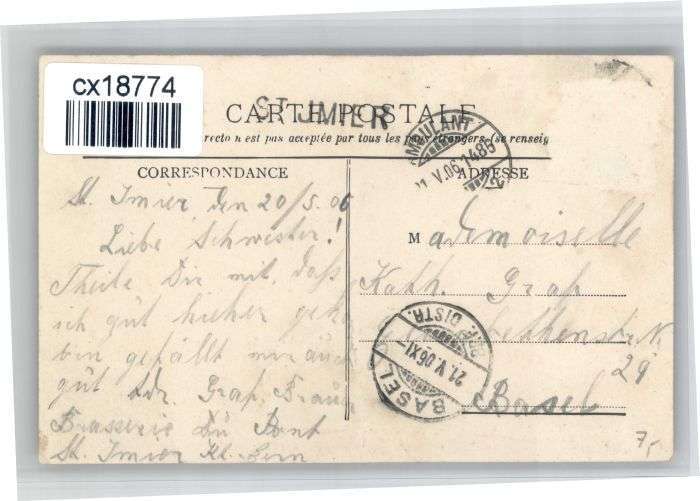 cx18774
CARTE POSTALE
ST. IMIER
recto n'est pas acceptée par tous les pays étrangers (se renseig
AMBULANT
21.V.06.1485
CORRESPONDANCE
ADRESSE
St. Imier, den 20/5. 06
Liebe Schwester!
Theile Dir mit, daß
ich gut hieher geko
bin gefällt mir auch
gut Adr. Graf, Brauer
Brasserie Du Pont
St. Imier Kt. Bern
Mademoiselle
Kath. Graf
bethenstr. N.
29
Basel
BRF. DISTR.
21.V.06 XI-
BASEL
7,-